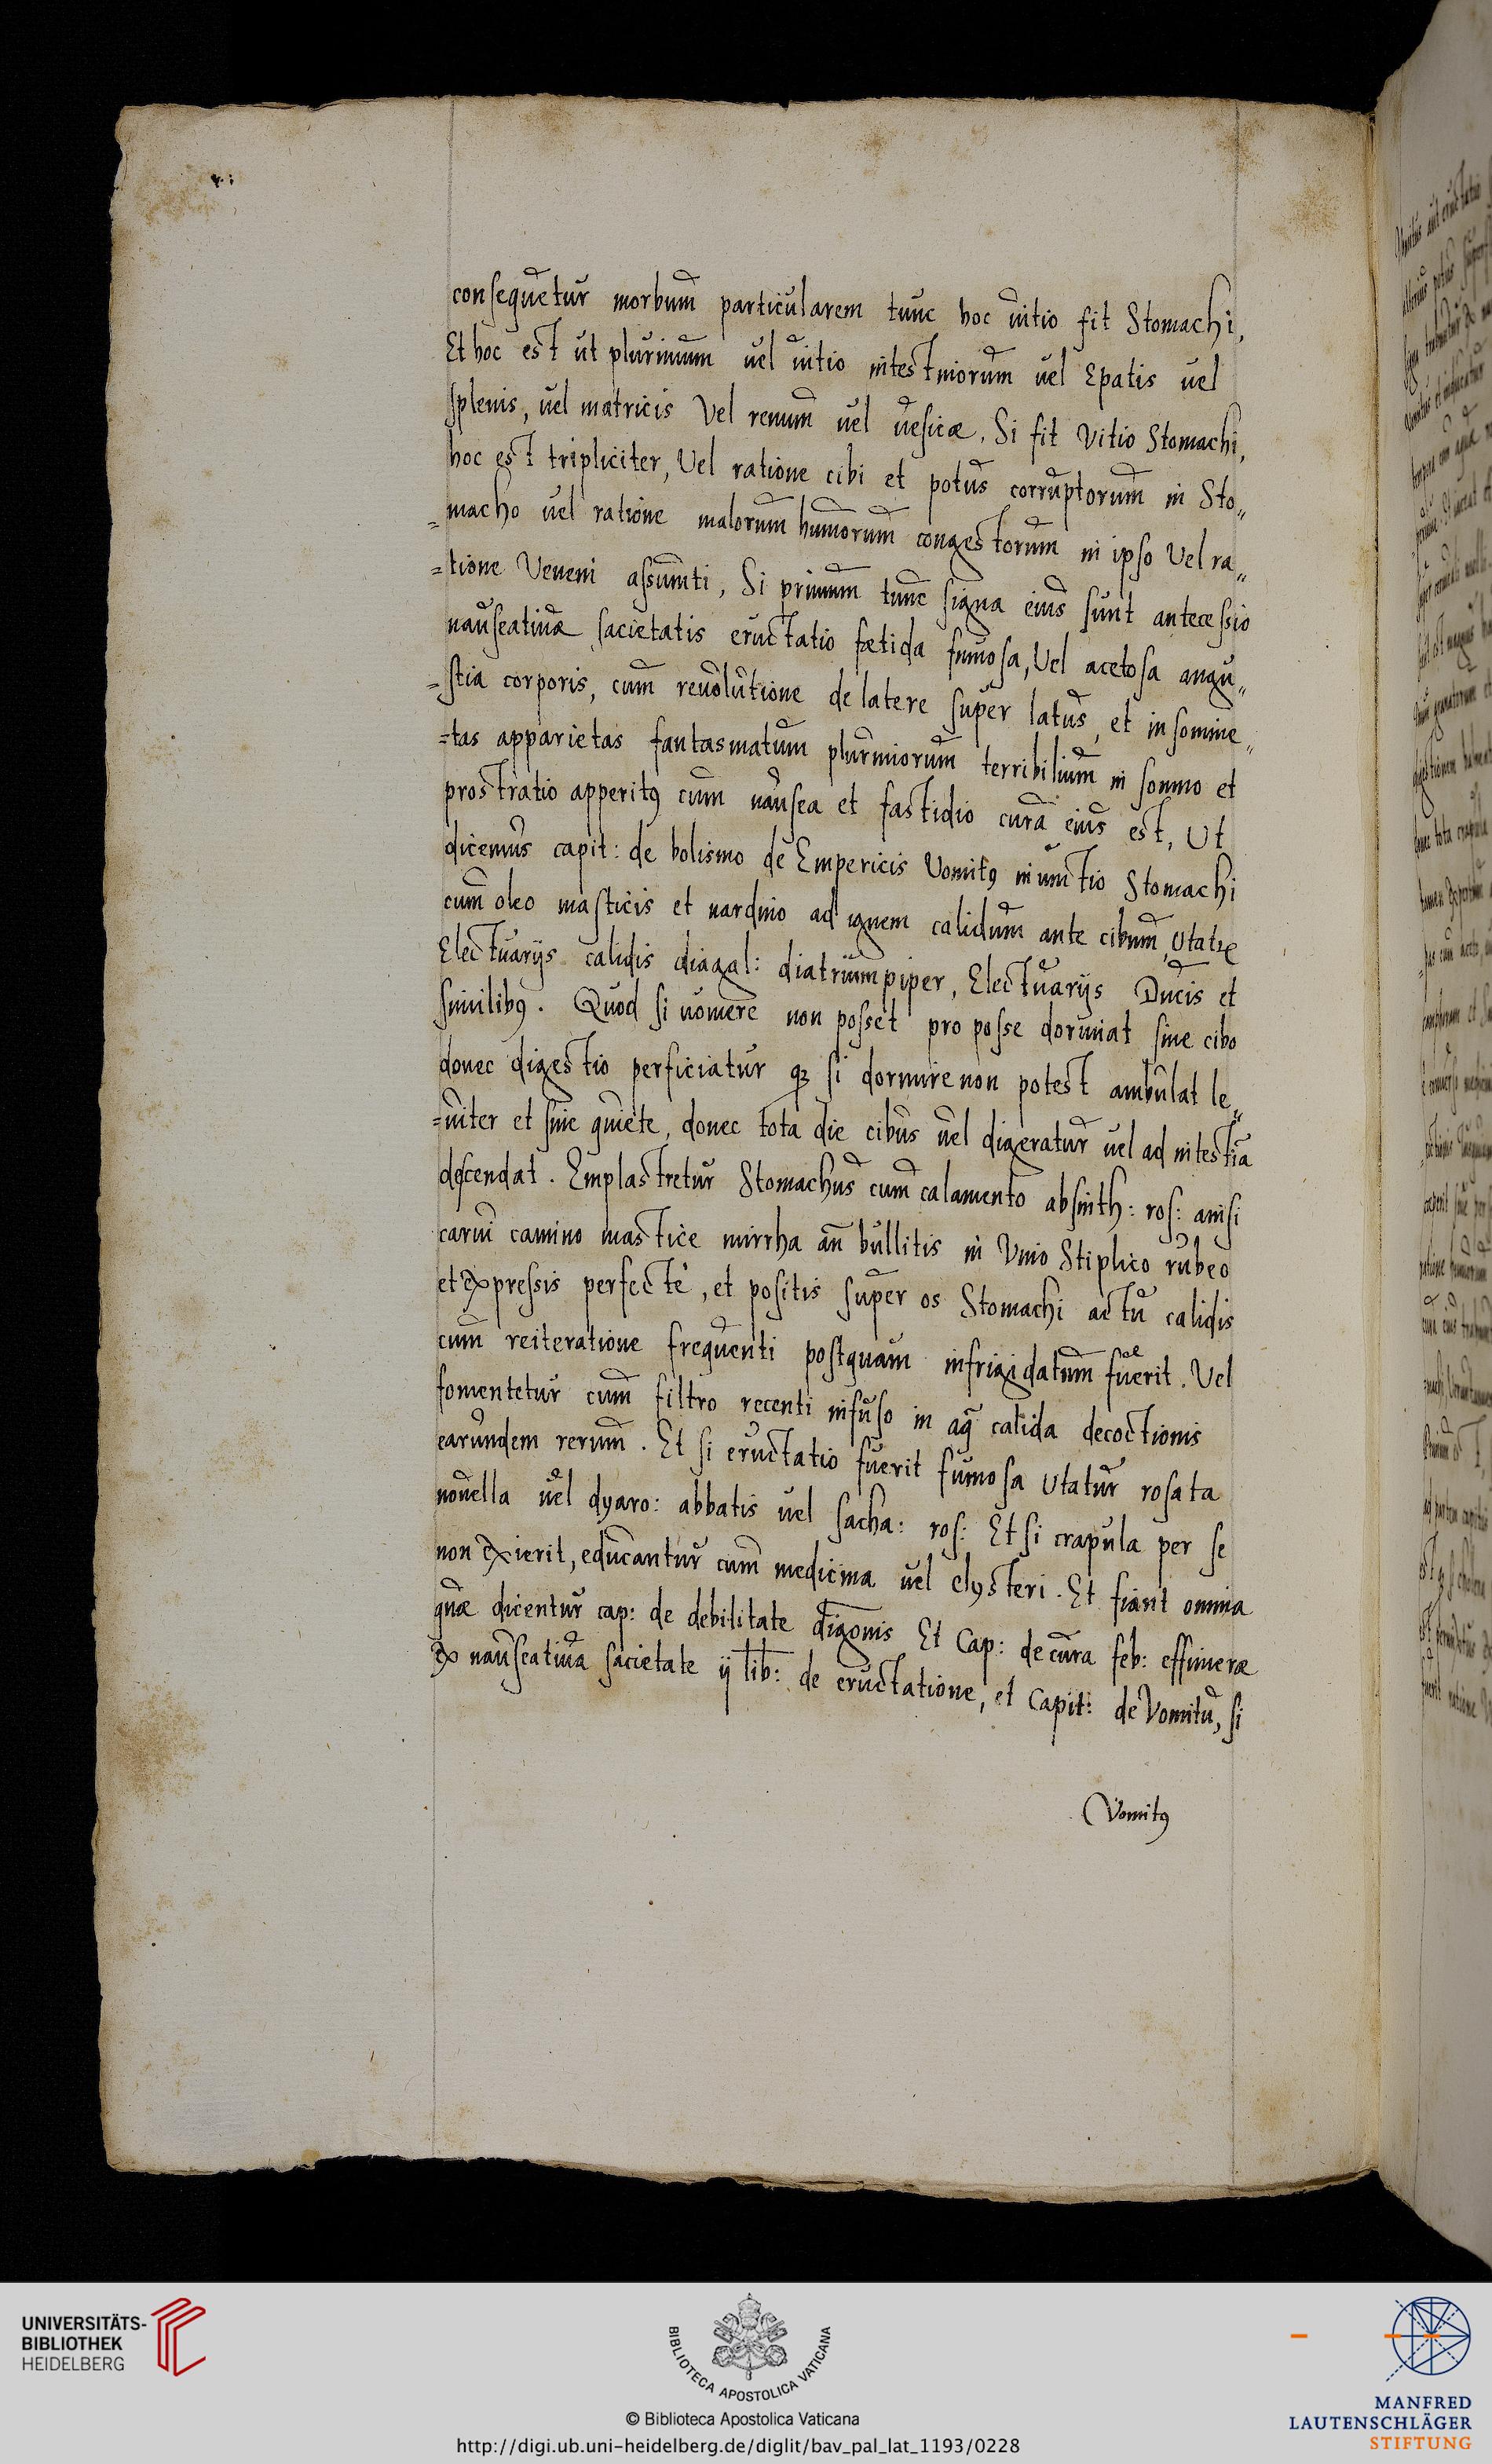 consequetur morbum particularem tunc hoc uitio fit Stomachi,
Et hoc est ut plurimum uel uitio intestinorum uel Epatis uel
splenis, uel matricis Vel renum uel uesicæ. Si fit Vitio Stomachi,
hoc est tripliciter, Vel ratione cibi et potus corruptorum in Sto„
=macho uel ratione malorum humorum congestorum in ipso Vel ra„
=tione Veneni assumti, Si primum tunc signa eius sunt antecessio
nauseatiuæ sacietatis eructatio fœtida fumosa, Vel acetosa angu„
=stia corporis, cum reuolutione de latere super latus, et in somnie„
=tas apparietas fantasmatum plurimorum terribilium in somno et
prostratio apperitꝯ cum nausea et fastidio cura eius est, Ut
dicemus capit: de bolismo de Empericis Vomitꝯ inunctio Stomachi
cum oleo masticis et nardino ad ignem calidum ante cibum, Utatꝛ
Electuarijs calidis diagal: diatriumpiper, Electuarijs Ducis et
similibꝯ. Quod si uomere non posset pro posse dormiat sine cibo
donec digestio perficiatur qꝫ si dormire non potest ambulat le„
=uiter et sine quiete, donec tota die cibus uel digeratur uel ad intestia
descendat. Emplastretur Stomachus cum calamento absinth: ros: anisi
carui camino mastice mirrha añ bullitis in Vnio Stiplico rubeo
et expressis perfecte, et positis super os Stomachi actu calidis
cum reiteratione frequenti postquam infrigidatum fuerit. Vel
fomentetur cum filtro recenti infuso in aq̃ calida decoctionis
earundem rerum. Et si eructatio fuerit fumosa Utatur rosata
nouella uel dyaro: abbatis uel sacha: ros: Et si crapula per se
non exierit, educantur cum medicina uel clysteri. Et fiant omnia
quæ dicentur cap: de debilitate digonis Et Cap: de cura feb: effimeræ
ex nauseatiua sacietate ij lib: de eructatione, et Capit: de Vomitu, si
Vomitꝯ
UNIVERSITÄTS-
BIBLIOTHEK
HEIDELBERG
BIBLIOTECA APOSTOLICA VATICANA
© Biblioteca Apostolica Vaticana
http://digi.ub.uni-heidelberg.de/diglit/bav_pal_lat_1193/0228
MANFRED
LAUTENSCHLÄGER
STIFTUNG